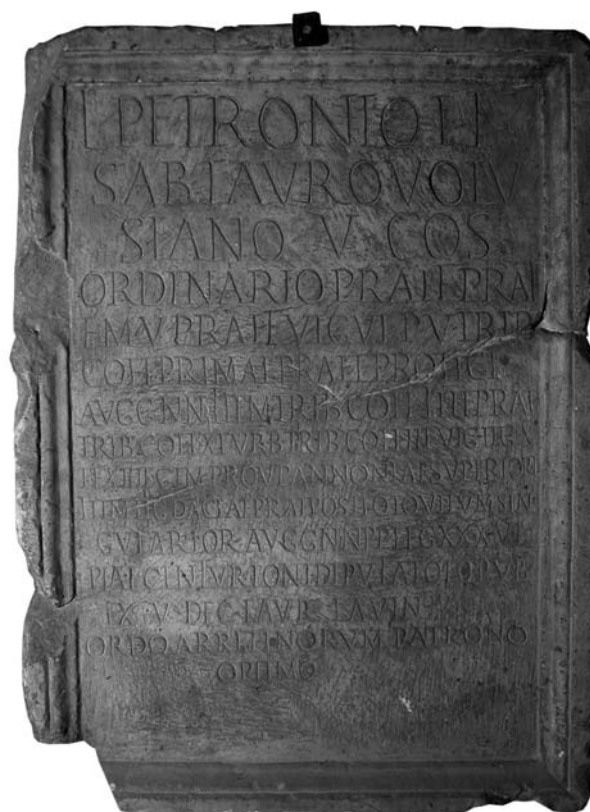 L PETRONIO L F
SAB TAVRO VOLV
SIANO V COS
ORDINARIO PRAEF PRAET
EM V PRAEF VIGVL P V TRIB
COH PRIMAE PRAET PROTECT
AVGG NN ITEM TRIB COH IIII PRAET
TRIB COH XI VRB TRIB COH III VIG LEG X
ET XIIII GEM PROV PANNONIAE SVPERIORE
ITEM LEG DACIAE PRAEPOSITO EQVITVM SIN
GVLARIOR AVGG NN P P LEG XXX VLP
PIAE CENTVRIONI DEPVTATO EQ PVB
EX V DEC LAVR LAVIN
ORDO ARRETINORVM PATRONO
OPTIMO